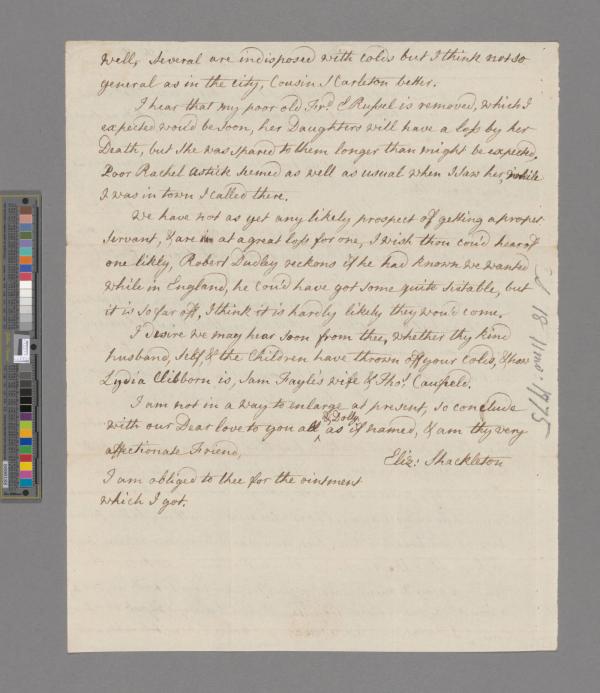 well, Several are indisposed with colds but I think not so
general as in the city, Cousin S Carleton better.
I hear that my poor old Frd. E Russel is removed, which I
expected would be soon, her Daughters will have a loss by her
Death, but she was spared to them longer than might be expected,
Poor Rachel seemed as well as usual when I saw her, while
I was in town I called there.
We have not as yet any likely prospect of getting a proper
Servant, & are at a great loss for one, I wish thou cou'd hear of
one likly, Robert Dudley reckons if he had known we wanted
while in England, he cou'd have got some quite suitable, but
it is so far off, I think it is hardly likely they wou'd come,
I desire we may hear soon from thee, whether thy kind
husband, self, & the Children have thrown off your colds, & how
Lydia Clibborn is, Sam Fayles wife & Tho: Caufield.
I am not in a way to enlarge at present, so conclude
& Dolly
with our Dear love to you all as if named, & am thy very
affectionate Friend,
Eliz: Shackleton
I am obliged to thee for the ointment
which I got.
18 11mo: 1775